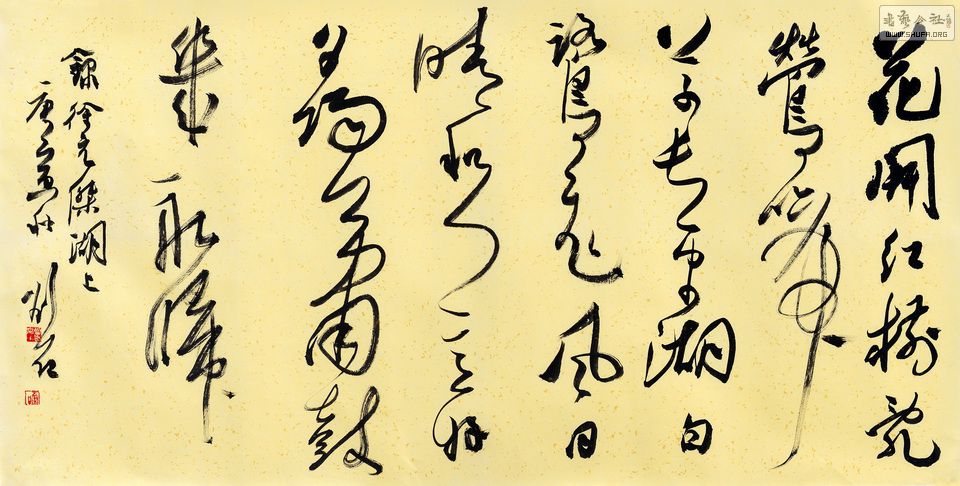 花開紅樹亂
鶯啼
草長平湖白
鷺飛風日
晴和人意好
夕陽簫鼓
幾船歸
錄徐元傑湖上
庚寅秋
書藝公社
WWW.SHUFA.ORG